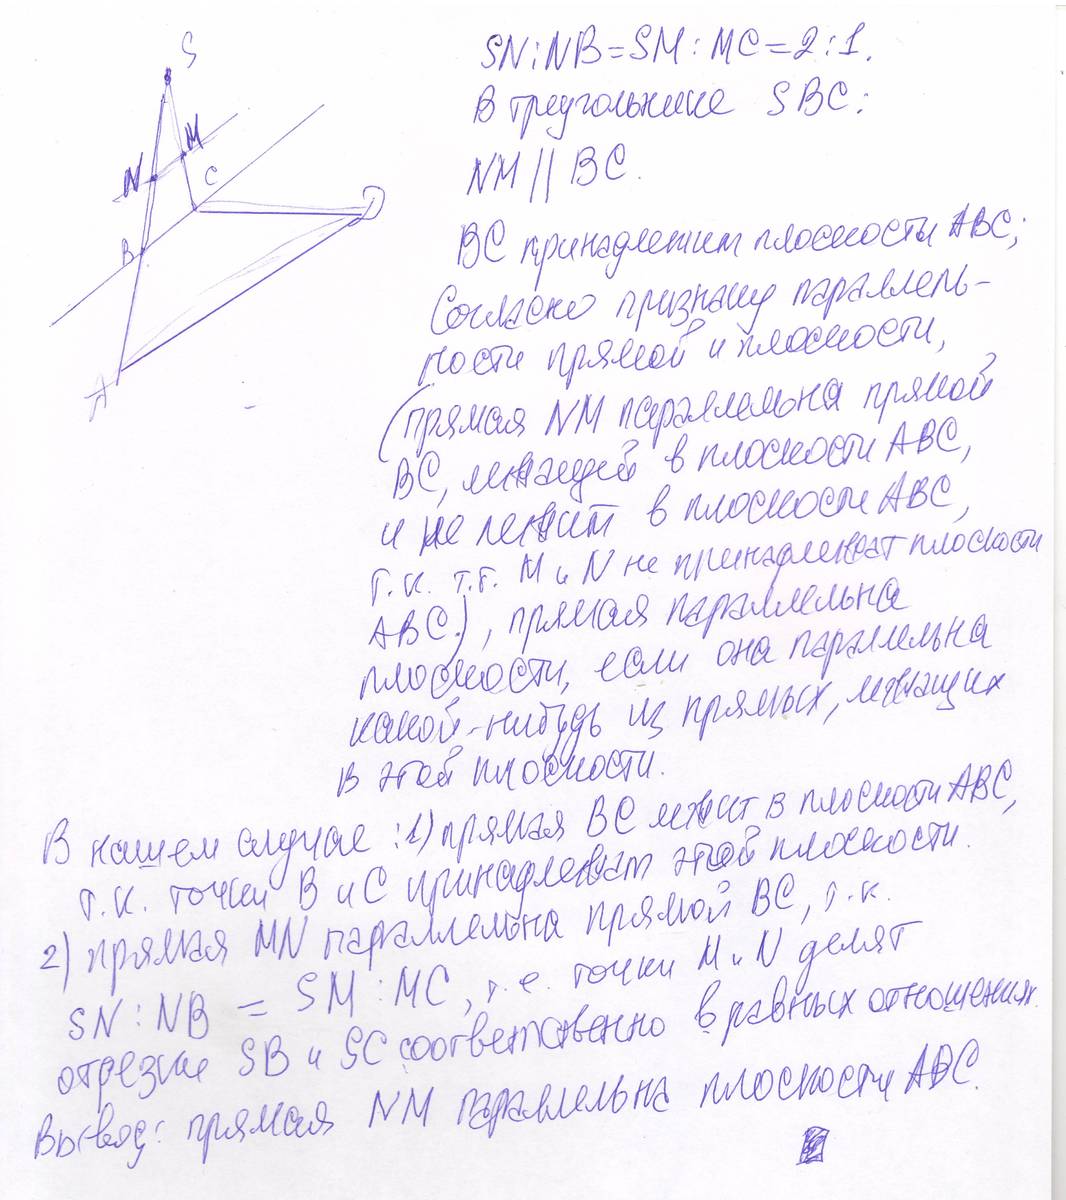 S
M
N
C
D
B
A
SN:NB=SM:MC=2:1.
В треугольнике SBC:
NM || BC.
BC принадлежит плоскости ABC;
Согласно признаку параллель-
ности прямой и плоскости,
(прямая NM параллельна прямой
BC, лежащей в плоскости ABC,
и не лежит в плоскости ABC,
т.к. т.т. M и N не принадлежат плоскости
ABC.), прямая параллельна
плоскости, если она параллельна
какой-нибудь из прямых, лежащих
в этой плоскости.
В нашем случае: 1) прямая BC лежит в плоскости ABC,
т.к. точки B и C принадлежат этой плоскости.
2) прямая MN параллельна прямой BC, т.к.
SN:NB = SM:MC, т.е. точки M и N делят
отрезки SB и SC соответственно в равных отношениях.
Вывод: прямая NM параллельна плоскости ABC.